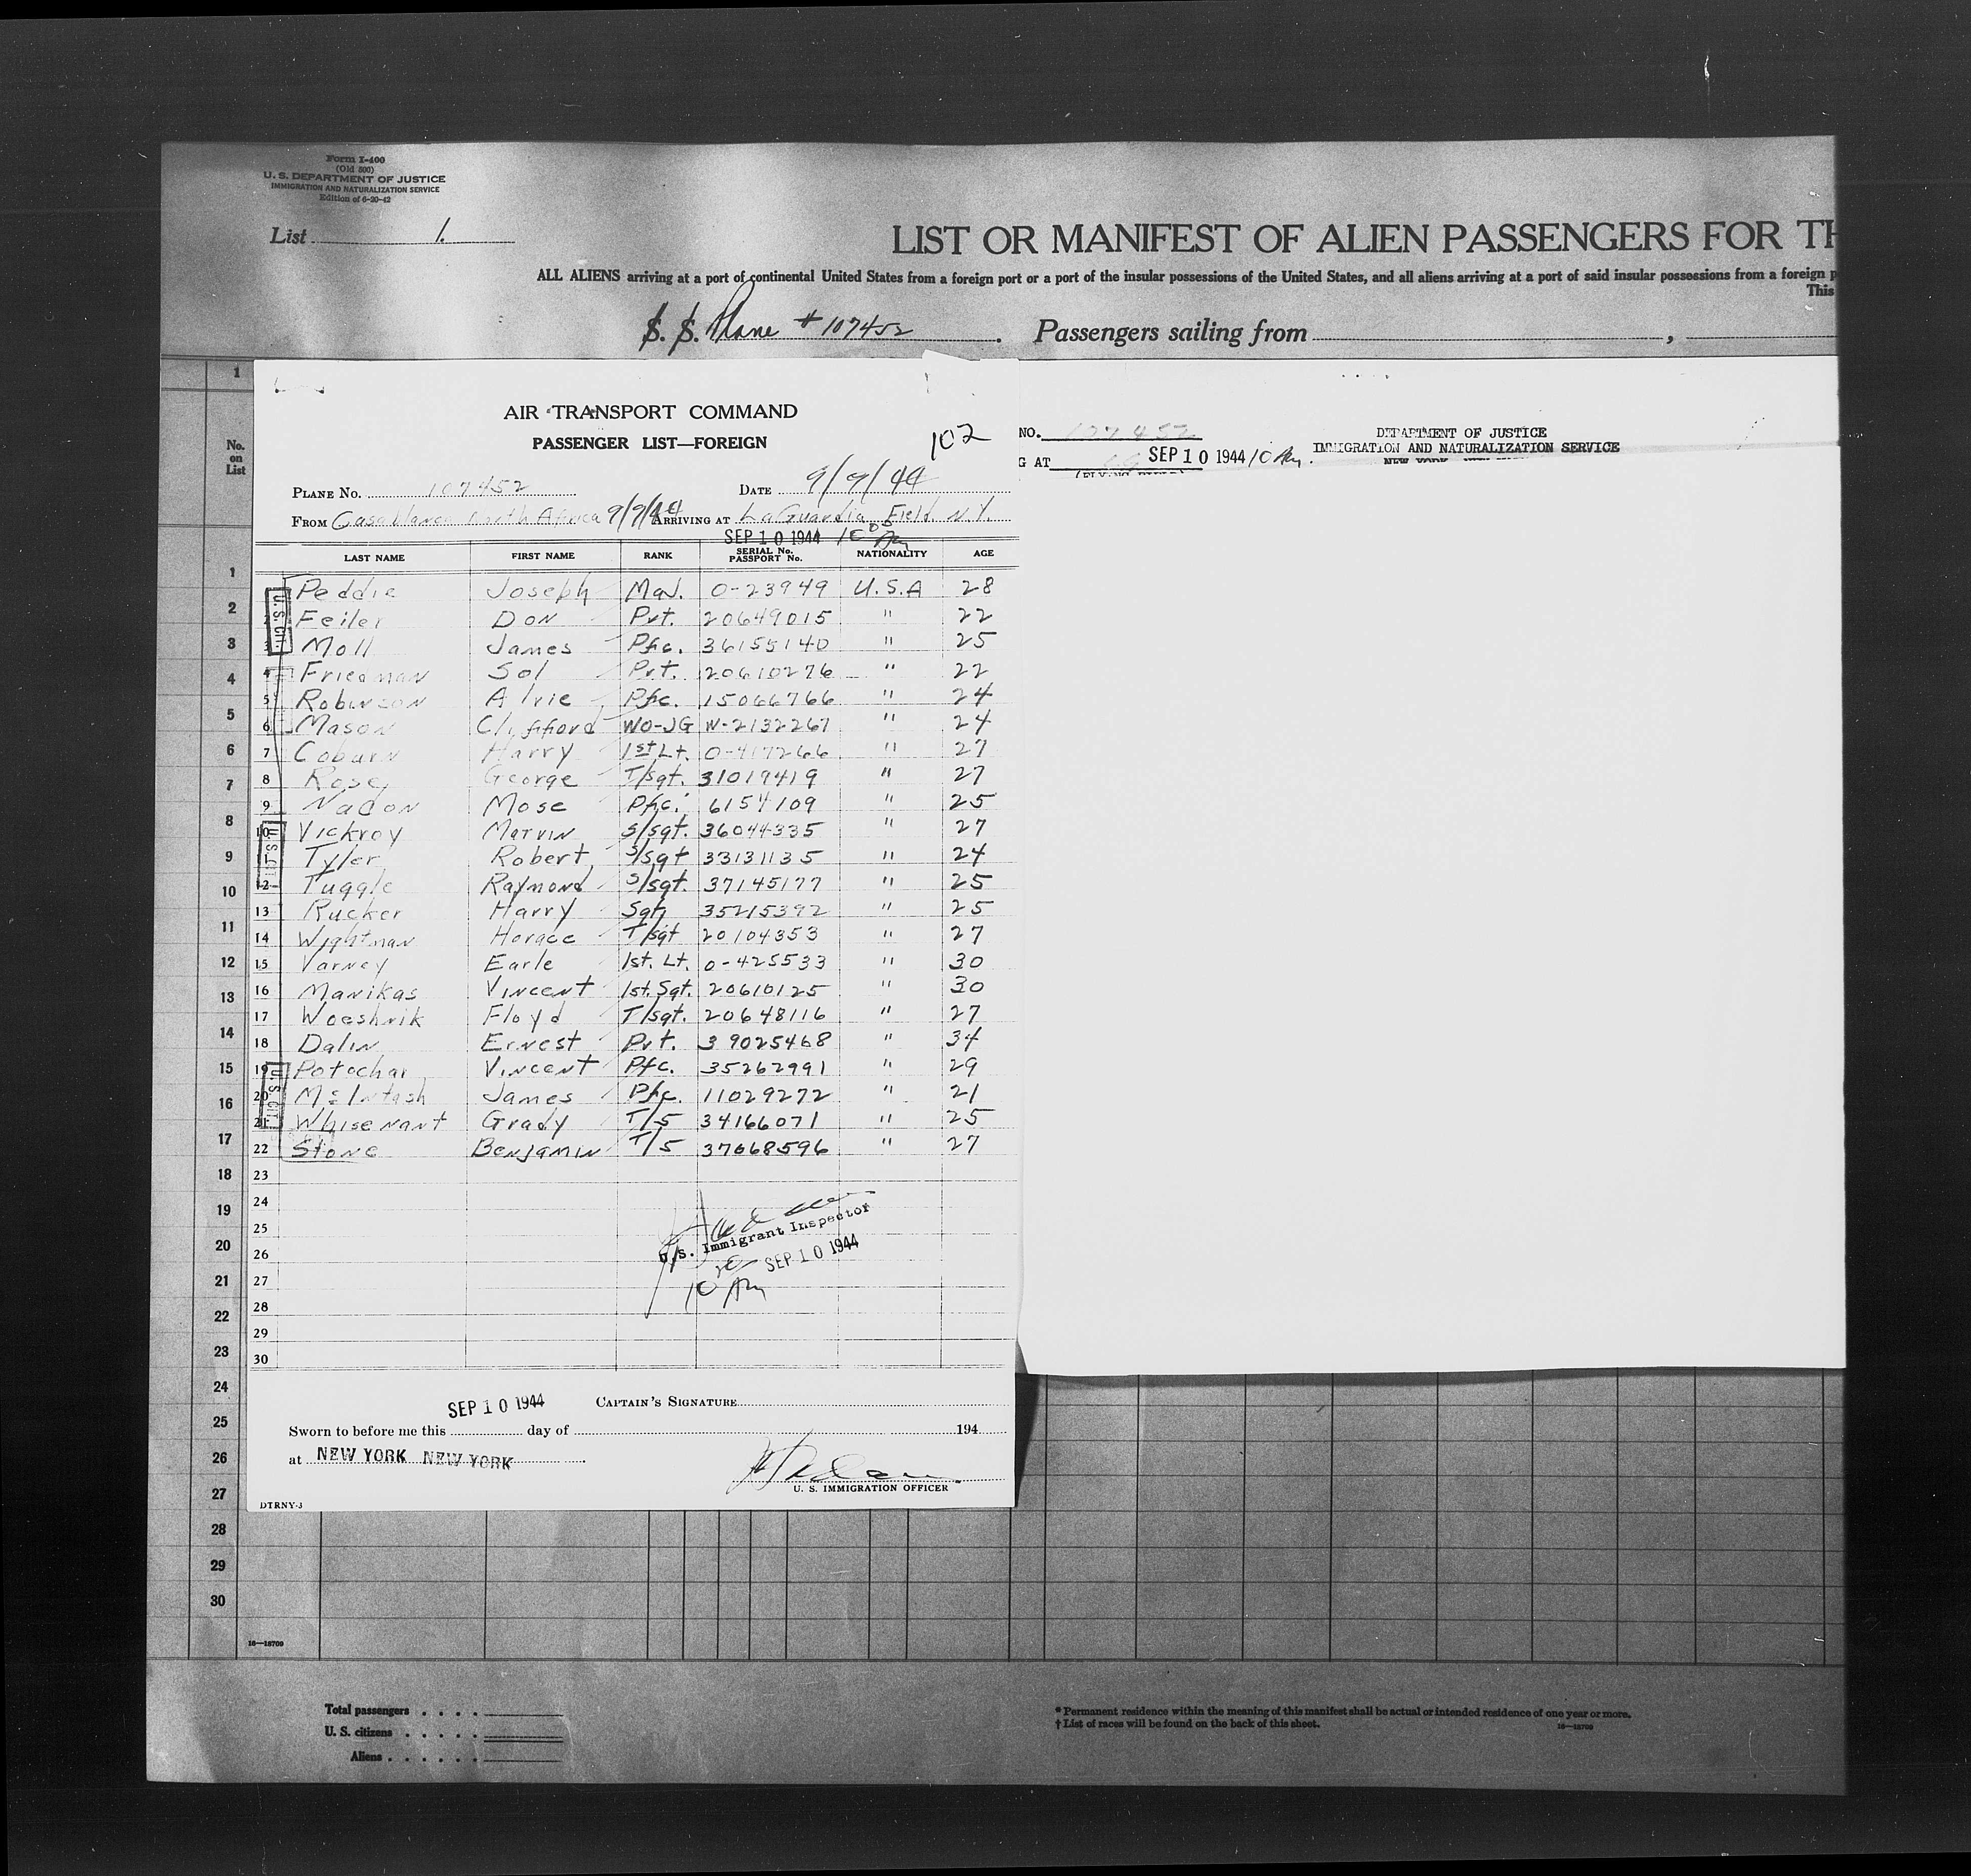 Form I-400
(Old 500)
U. S. DEPARTMENT OF JUSTICE
IMMIGRATION AND NATURALIZATION SERVICE
Edition of 6-20-42
List 1.
LIST OR MANIFEST OF ALIEN PASSENGERS FOR TH
ALL ALIENS arriving at a port of continental United States from a foreign port or a port of the insular possessions of the United States, and all aliens arriving at a port of said insular possessions from a foreign p
This
S. S. Plane # 107452 . Passengers sailing from ,
1
No. on List
AIR TRANSPORT COMMAND
PASSENGER LIST—FOREIGN
102
PLANE NO. 107452 DATE 9/9/44
FROM Casablanca North Africa 9/9/44 ARRIVING AT LaGuardia Field. N.Y.
SEP 10 1944 10 00 AM
NO. 107452
G AT SEP 10 1944 10 AM.
(FLYING FIELD)
DEPARTMENT OF JUSTICE
IMMIGRATION AND NATURALIZATION SERVICE
NEW YORK
LAST NAME FIRST NAME RANK SERIAL No. PASSPORT No. NATIONALITY AGE
Peddie Joseph Maj. 0-23949 U.S.A 28
Feiler Don Pvt. 20649015 " 22
Moll James Pfc. 36155140 " 25
4 Friedman Sol Pvt. 20610276 " 22
5 Robinson Alvie Pfc. 15066766 " 24
6 Mason Clifford WO-JG W-2132267 " 24
7 Coburn Harry 1st Lt. 0-417266 " 27
8 Rose George T/sgt. 31019419 " 27
9 Nadon Mose Pfc. 6154109 " 25
10 Vickroy Marvin S/sgt. 36044335 " 27
Tyler Robert S/sgt 33131135 " 24
12 Tuggle Raymond S/sgt. 37145177 " 25
13 Rucker Harry Sgt 35215392 " 25
14 Wightman Horace T/sgt 20104353 " 27
15 Varney Earle 1st. Lt. 0-425533 " 30
16 Manikas Vincent 1st. Sgt. 20610125 " 30
17 Woeshnik Floyd T/sgt. 20648116 " 27
18 Dalin Ernest Pvt. 39025468 " 34
19 Potochar Vincent Pfc. 35262991 " 29
20 McIntash James Pfc. 11029272 " 21
21 Whisenant Grady T/5 34166071 " 25
22 Stone Benjamin T/5 37668596 " 27
23
24
25
26
27
28
29
30
U.S. CIT.
U.S. CIT.
U.S. CIT.
U.S. Immigrant Inspector
SEP 10 1944
10 AM
SEP 10 1944 CAPTAIN'S SIGNATURE
Sworn to before me this day of 194
at NEW YORK NEW YORK
U. S. IMMIGRATION OFFICER
DTRNY-3
1
2
3
4
5
6
7
8
9
10
11
12
13
14
15
16
17
18
19
20
21
22
23
24
25
26
27
28
29
30
16—18709
Total passengers
U. S. citizens
Aliens
* Permanent residence within the meaning of this manifest shall be actual or intended residence of one year or more.
† List of races will be found on the back of this sheet. 16—18709